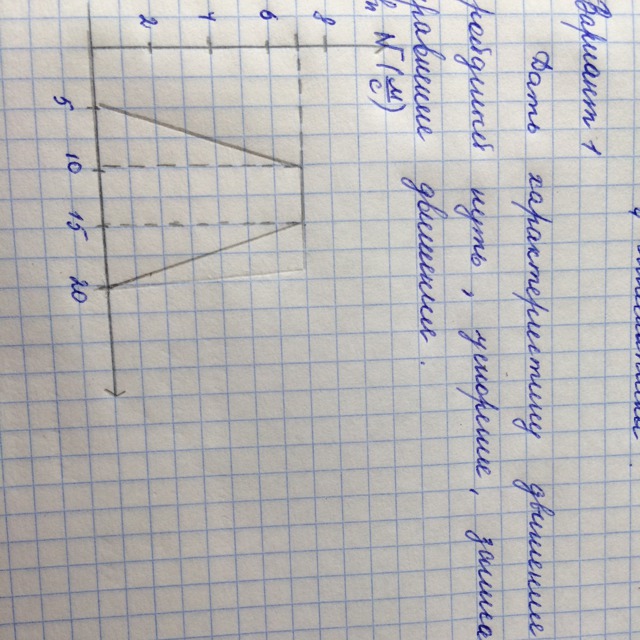 Вариант 1
Дать характеристику движению
ройденный путь, ускорение, записа
равнение движения.
υ (м/с)
8
6
4
2
5 10 15 20